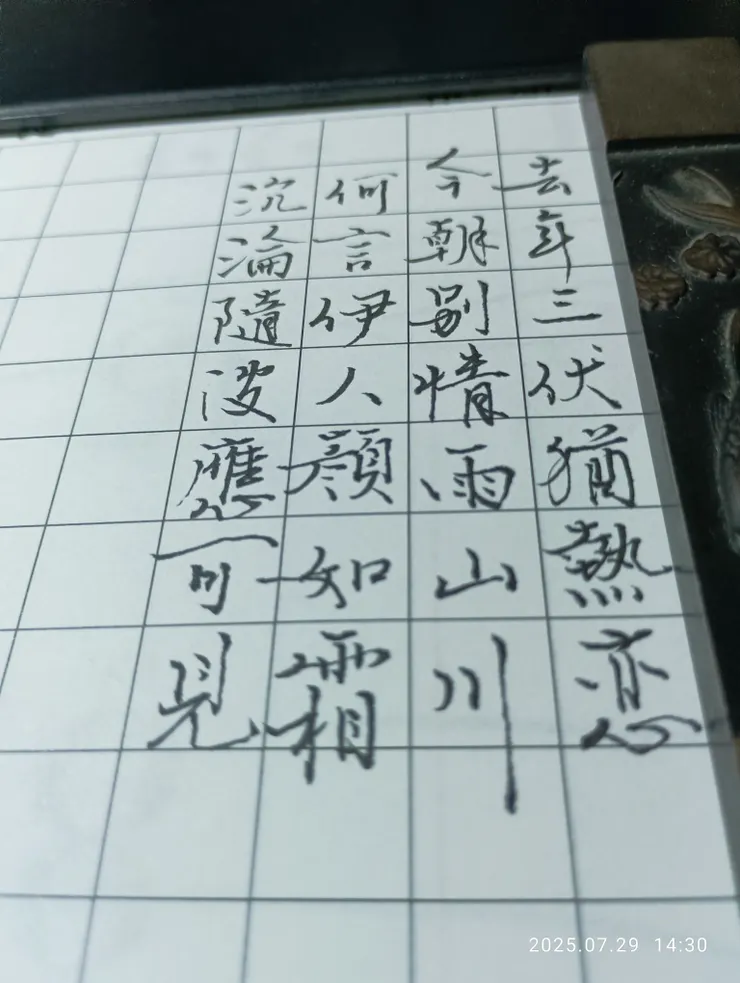 去年三伏猶熱恋
今朝别情雨山川
何言伊人顏如霜
沉淪隨波應可見
2025.07.29 14:30